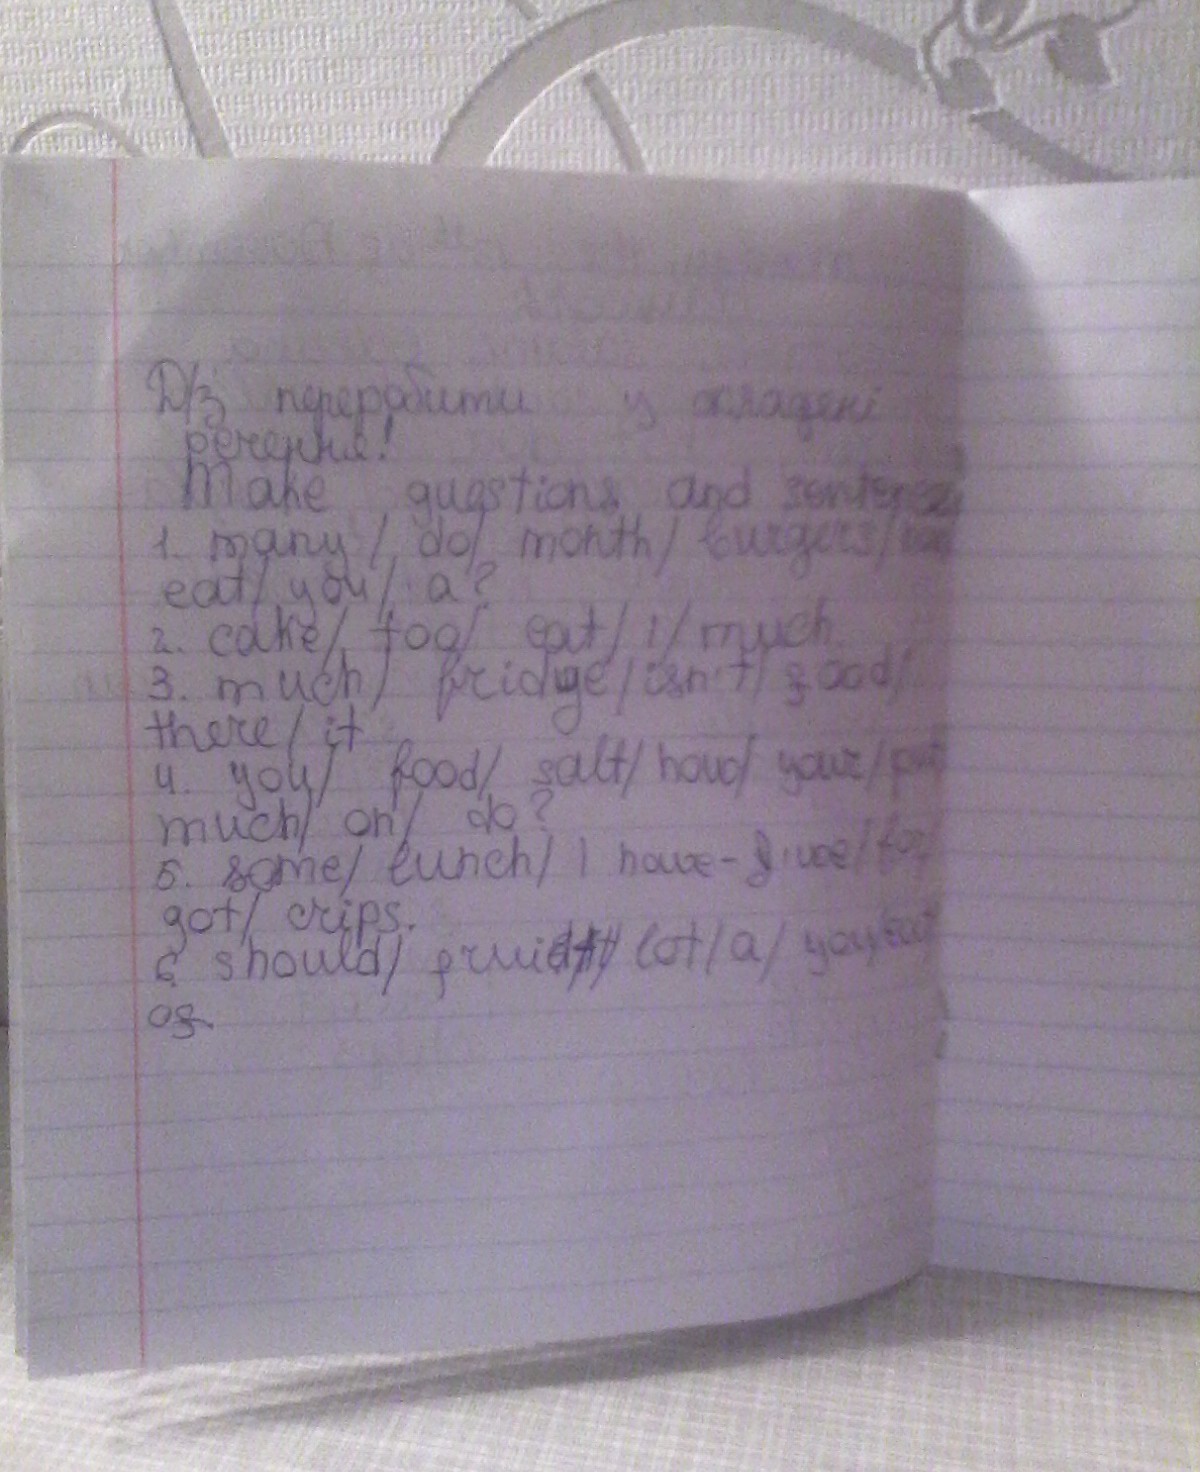 Д/з переробити у складені
речення!
Make questions and sentences
1. many/ do/ month/ burgers/
eat/ you/ a?
2. cake/ too/ eat/ I/ much.
3. much/ fridge/ isn't/ food/
there/ it
4. you/ food/ salt/ how/ your/ put
much/ on/ do?
5. some/ lunch/ I have-I've/ for/
got/ crips.
6 should/ fruit/ lot/ a/ you/ eat/
of